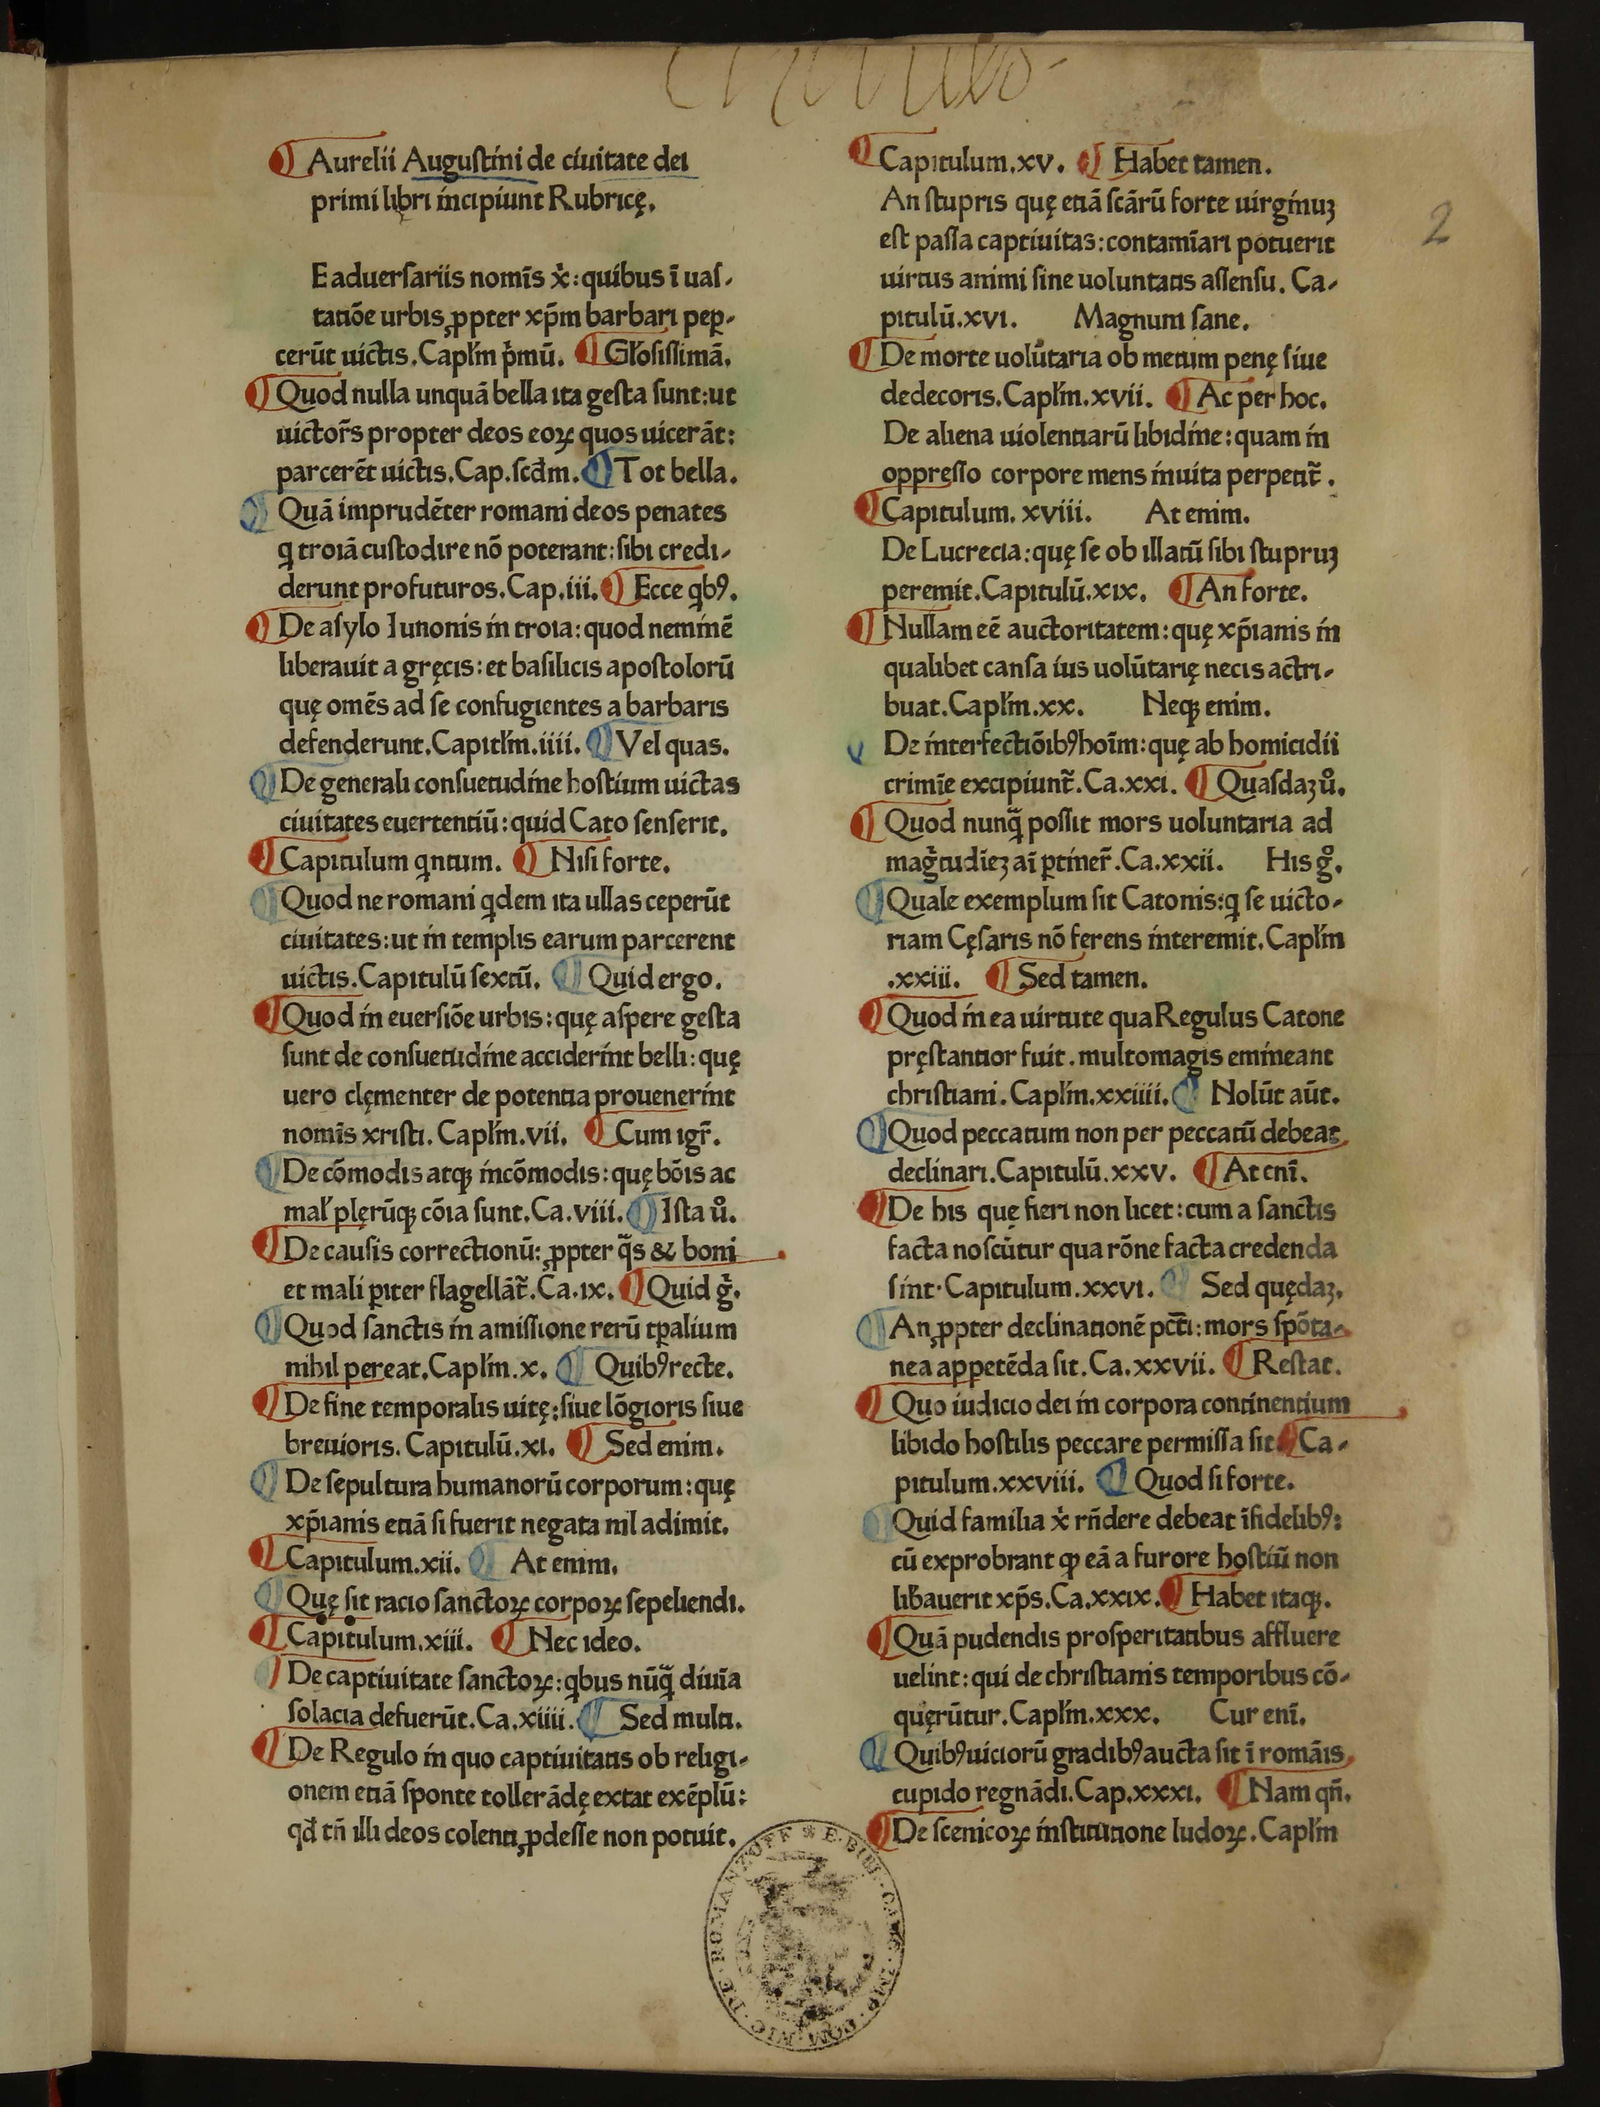 2
Aurelii Augustini de ciuitate dei
primi libri incipiunt Rubricę.
E aduersariis nomīs x̓: quibus ī uas-
tatiōe urbis ꝓpter xp̄m barbari peꝑ-
cerūt uictis. Capľm p̓mū. Gľosissimā.
Quod nulla unquā bella ita gesta sunt: ut
uictor̃s propter deos eoꝝ quos uicerāt:
parcerēt uictis. Cap. scd̄m. Tot bella.
Quā imprudēter romani deos penates
q troiā custodire nō poterant: sibi credi-
derunt profuturos. Cap. iii. Ecce qbꝰ.
De asylo Iunonis in troia: quod neminē
liberauit a gręcis: et basilicis apostolorū
quę omēs ad se confugientes a barbaris
defenderunt. Capitľm. iiii. Vel quas.
De generali consuetudine hostium uictas
ciuitates euertentiū: quid Cato senserit.
Capitulum qntum. Nisi forte.
Quod ne romani qdem ita ullas ceperūt
ciuitates: ut in templis earum parcerent
uictis. Capitulū sextū. Quid ergo.
Quod in euersiōe urbis: quę aspere gesta
sunt de consuetudine acciderint belli: quę
uero clęmenter de potentia prouenerint
nomīs xristi. Capľm. vii. Cum igr̃.
De cōmodis atqꝫ incōmodis: quę bōis ac
maľ plerūqꝫ cōia sunt. Ca. viii. Ista ů.
De causis correctionū: ꝓpter q̄s & boni
et mali ꝑiter flagellāt̃. Ca. ix. Quid g̓.
Quod sanctis in amissione rerū tꝑalium
nihil pereat. Capľm. x. Quibꝰ recte.
De fine temporalis uitę: siue lōgioris siue
breuioris. Capitulū. xi. Sed enim.
De sepultura humanorū corporum: quę
xp̄ianis etiā si fuerit negata nil adimit.
Capitulum. xii. At enim.
Quę sit racio sanctoꝝ corpoꝝ sepeliendi.
Capitulum. xiii. Nec ideo.
De captiuitate sanctoꝝ: qbus nūq̄ diuīa
solacia defuerūt. Ca. xiiii. Sed multi.
De Regulo in quo captiuitatis ob religi-
onem etiā sponte tollerādę extat exēplū:
qđ tñ illi deos colenti ꝓdesse non potuit.
Capitulum. xv. Habet tamen.
An stupris quę etiā scārū forte uirginuꝫ
est passa captiuitas: contamīari potuerit
uirtus animi sine uoluntatis assensu. Ca-
pitulū. xvi. Magnum sane.
De morte uolūtaria ob metum penę siue
dedecoris. Capľm. xvii. Ac per hoc.
De aliena uiolentiarū libidine: quam in
oppresso corpore mens inuita perpetit̃.
Capitulum. xviii. At enim.
De Lucrecia: quę se ob illatū sibi stupruꝫ
peremit. Capitulū. xix. An forte.
Nullam eē auctoritatem: quę xp̄ianis in
qualibet cansa ius uolūtarię necis actri-
buat. Capľm. xx. Neqꝫ enim.
De interfectiōibꝰ hoīm: quę ab homicidii
crimīe excipiunt̃. Ca. xxi. Quasdaꝫ ů.
Quod nunq̄ possit mors uoluntaria ad
mag̓tudīeꝫ aī ꝑtiner̃. Ca. xxii. His g̊.
Quale exemplum sit Catonis: q se uicto-
riam Cęsaris nō ferens interemit. Capľm
.xxiii. Sed tamen.
Quod in ea uirtute qua Regulus Catone
pręstantior fuit. multomagis emineant
christiani. Capľm. xxiiii. Nolūt aūt.
Quod peccatum non per peccatū debeat
declinari. Capitulū. xxv. At enī.
De his quę fieri non licet: cum a sanctis
facta noscūtur qua rōne facta credenda
sint. Capitulum. xxvi. Sed quędaꝫ.
An ꝓpter declinationē pcc̄ti: mors spōta-
nea appetēda sit. Ca. xxvii. Restat.
Quo iudicio dei in corpora continentium
libido hostilis peccare permissa sit Ca-
pitulum. xxviii. Quod si forte.
Quid familia x̓ rñdere debeat īfidelibꝰ:
cū exprobrant ꝙ eā a furore hostiū non
libauerit xp̄s. Ca. xxix. Habet itaqꝫ.
Quā pudendis prosperitatibus affluere
uelint: qui de christianis temporibus cō-
quęrūtur. Capľm. xxx. Cur enī.
Quibꝰ uiciorū gradibꝰ aucta sit ī romāis
cupido regnādi. Cap. xxxi. Nam qñ.
De scenicoꝝ institutione ludoꝝ. Capľm